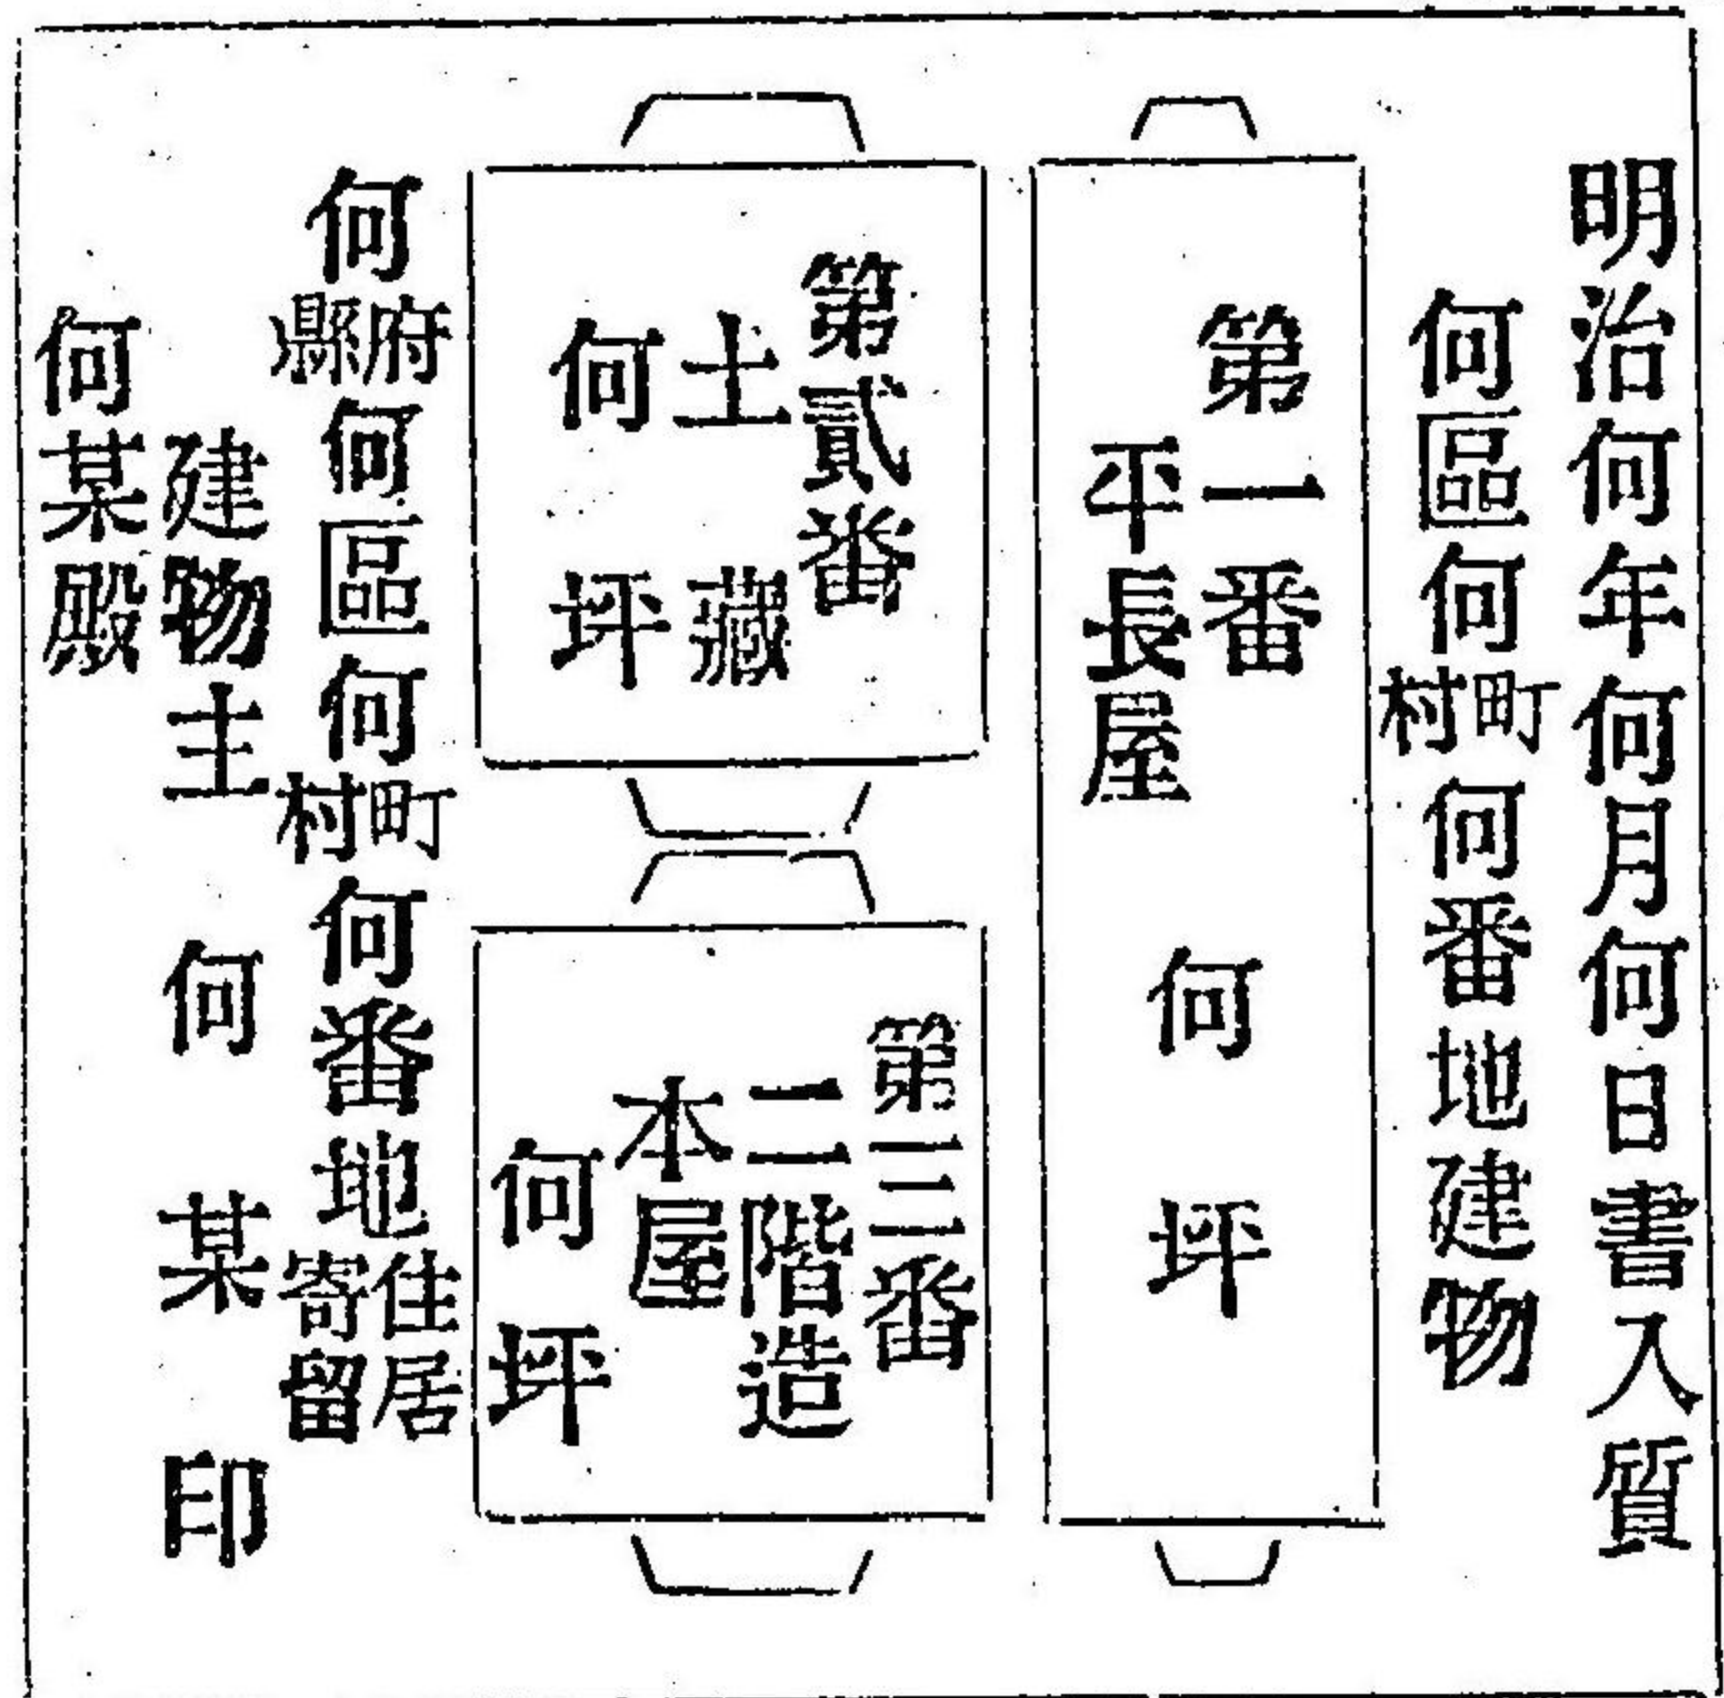 明治何年何月何日書入質
何區何町村何番地建物
第一番
平長屋
何坪
第貳番
土藏
何坪
第三番
二階造
本屋
何坪
何府縣何區何町村何番地住居寄留
建物主 何某印
何某殿